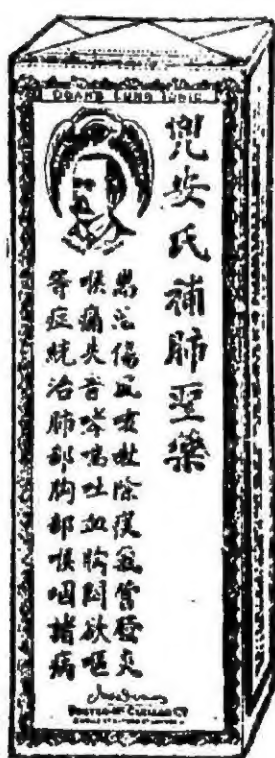 DOAN'S LUNG TONIC
兜安氏補肺聖藥
專治傷風咳嗽除痰氣管發炎
喉痛失音哮喘吐血胸悶欲嘔
等症統治肺部胸部喉咽諸病
FOSTER-McCLELLAN Co